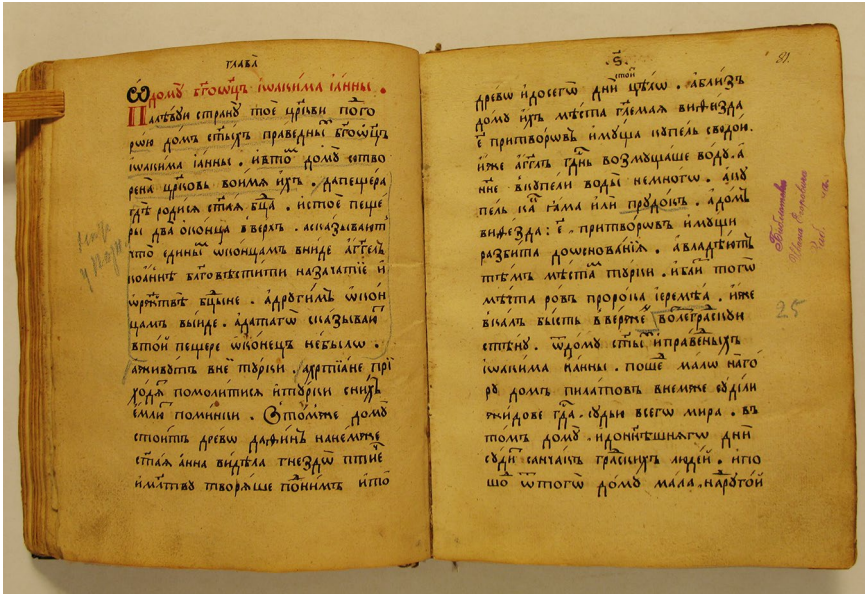 глава̀
Ѡдомꙋ бг҃оѡц҃ъ іѡакима іа҆нны .
Палѣвꙋи странꙋ тоѐ цр҃кви пог҃о
рѡю домъ ст҃ыхъ праведны бг҃оѡц҃ъ
іѡакима іа҆нны . ивтоⷨ домꙋ сотво
рена цр҃ковь воимя и҆хъ . дапещера
гдѣ родися ст҃ая бц҃а . истоѐ пеще
ры два оконца вверхъ . асказываютъ
что единыⷨ ѡконцамъ вниде а҆гг҃елъ
коа҆ннѣ благовѣстити назачатїе и
ѡржт҃вѣ бц҃ыне . адрꙋгимъ ѡкон
цамъ выиде . адатагѡ сказываю
втои пещере ѡконецъ небылѡ .
аживꙋтъ внеи тꙋрки . ахрт҃їане прї
ходя помолитися итꙋрки снихъ
емлю поминки . Ѻтомже домꙋ
стоитъ древѡ дафинъ нанемже
ст҃ая анна видѣла гнездѡ птиче
имл҃твꙋ творяше поⷩнимъ ито
ѕ҃. 81.
стоитъ
древѡ идосегѡ дни цѣлѡ . аблизъ
домꙋ и҆хъ мѣста гл҃емая виѳезда
є҃ притворѡвъ имꙋща кꙋпель сводои.
иже а҆гг҃лъ гд҃нь возмꙋщаше водꙋ . а
нн҃е вкꙋпели воды немногѡ . акꙋ
пель каⷦ҇ ꙗма или прꙋдокъ . адомъ
виѳезда : є҃ притворѡвъ имꙋщи
разбита доѡснованїя . авладѣютъ
тѣмъ мѣстаⷨ тꙋрки . иблиⷥ тогѡ
мѣста ровъ пророка іереме́а . иже
вкалъ бысть ввержеⷩ волеграскꙋю
стѣнꙋ . Ѿдомꙋ ст҃ыⷯ иправеныхъ
іѡакима иа҆нны . пошеⷣ малѡ наго
рꙋ домъ пилатовъ внемже сꙋдїли
жидове гд҃а . сꙋдью всего мира . въ
томъ домꙋ . идоннешнягѡ дни
сꙋдиⷮ санчакъ граскихъ людеи . ипо
шоⷣ ѿтогѡ домꙋ мала . нарꙋгои
Библиотека
25